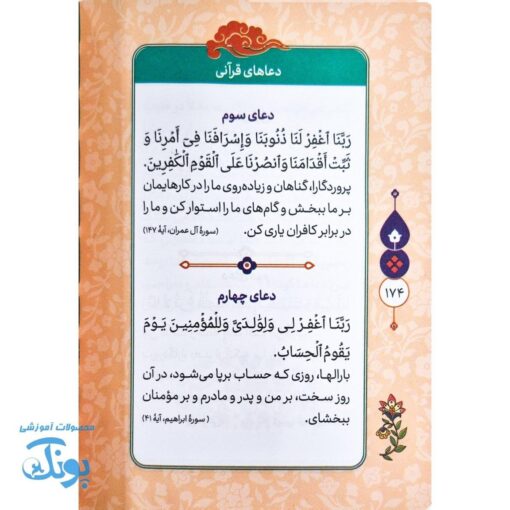 دعاهای قرآنی
دعای سوم
رَبَّنَا ٱغْفِرْ لَنَا ذُنُوبَنَا وَإِسْرَافَنَا فِىٓ أَمْرِنَا وَ
ثَبِّتْ أَقْدَامَنَا وَٱنصُرْنَا عَلَى ٱلْقَوْمِ ٱلْكَٰفِرِينَ.
پروردگارا، گناهان و زیاده‌روی ما را در کارهایمان
بر ما ببخش و گام‌های ما را استوار کن و ما را
در برابر کافران یاری کن. (سورهٔ آل عمران، آیهٔ ۱۴۷)
دعای چهارم
رَبَّنَا ٱغْفِرْ لِى وَلِوَٰلِدَىَّ وَلِلْمُؤْمِنِينَ يَوْمَ
يَقُومُ ٱلْحِسَابُ.
بارالها، روزی که حساب برپا می‌شود، در آن
روز سخت، بر من و پدر و مادرم و بر مؤمنان
ببخشای. (سورهٔ ابراهیم، آیهٔ ۴۱)
۱۷۴
محصولات آموزشی
پونک